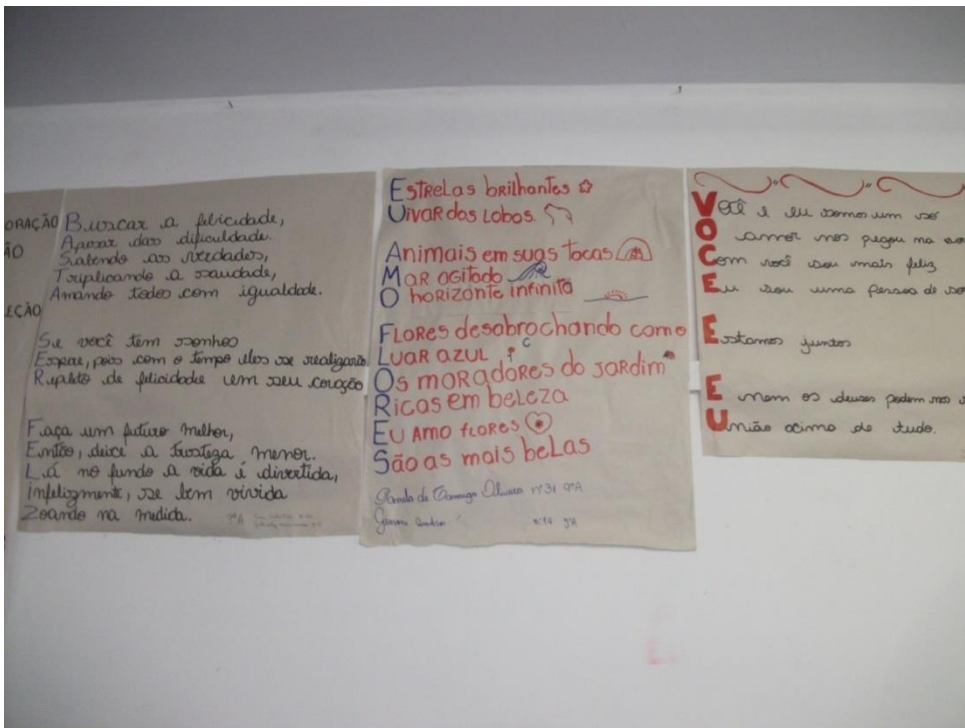 ORAÇÃO
ÃO
EÇÃO
Buscar a felicidade,
Apesar das dificuldade.
Sabendo as verdades,
Triplicando a saudade,
Amando todos com igualdade.
Se você tem sonhos
Espere, pois com o tempo eles se realizarão
Repleto de felicidade em seu coração
Faça um futuro melhor,
Então, deixe a tristeza menor.
Lá no fundo a vida é divertida,
Infelizmente, se bem vivida
Zoando na medida.
7ºA
Estrelas brilhantes
Uivar dos Lobos.
Animais em suas tocas
Mar agitado
O horizonte infinito
Flores desabrochando como
Luar azul
Os moradores do jardim
Ricas em beleza
Eu amo flores
São as mais belas
de Camargo Oliveira nº31 9ºA
Você e eu somos um só
O amor nos pegou na
Com você sou mais feliz
Eu sou uma pessoa de
Estamos juntos
E nem os deuses podem nos
União acima de tudo.